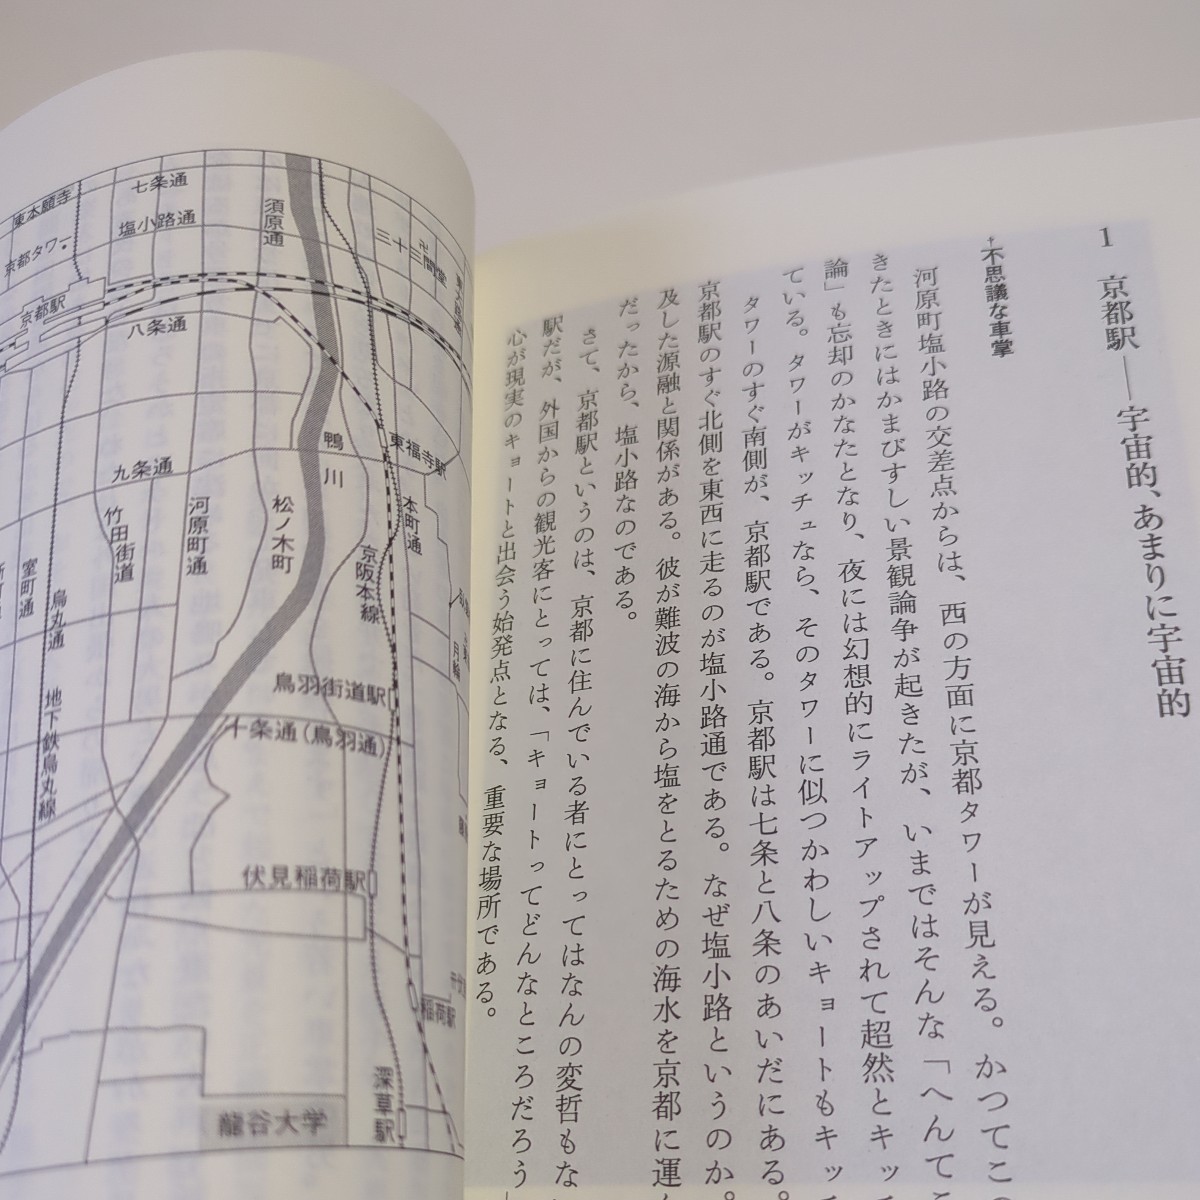 1 京都駅――宇宙的、あまりに宇宙的
†不思議な車掌
河原町塩小路の交差点からは、西の方面に京都タワーが見える。かつてこの
きたときにはかまびすしい景観論争が起きたが、いまではそんな「へんてこ
論」も忘却のかなたとなり、夜には幻想的にライトアップされて超然とキッ
ている。タワーがキッチュなら、そのタワーに似つかわしいキョートもキッ
タワーのすぐ南側が、京都駅である。京都駅は七条と八条のあいだにある。
京都駅のすぐ北側を東西に走るのが塩小路通である。なぜ塩小路というのか。
及した源融と関係がある。彼が難波の海から塩をとるための海水を京都に運
だったから、塩小路なのである。
さて、京都駅というのは、京都に住んでいる者にとってはなんの変哲もな
駅だが、外国からの観光客にとっては、「キョートってどんなところだろう
心が現実のキョートと出会う始発点となる、重要な場所である。
七条通
東本願寺
塩小路通
京都タワー
須原通
三十三間堂
京都駅
八条通
鴨川
東福寺駅
九条通
本町通
竹田街道
河原町通
松ノ木町
京阪本線
室町通
烏丸通
月輪
鳥羽街道駅
十条通(鳥羽通)
地下鉄烏丸線
伏見稲荷駅
稲荷駅
深草駅
龍谷大学